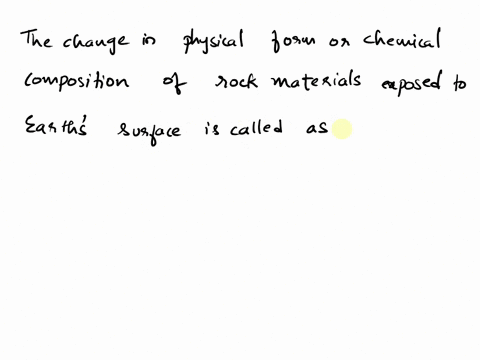 The change in physical form or chemical
composition of rock materials exposed to
Earth's surface is called as